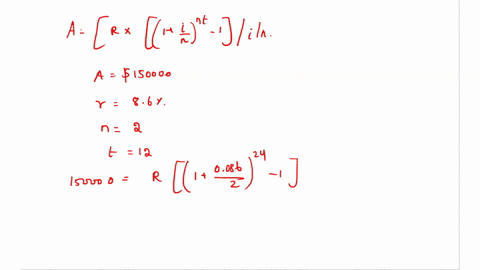 A = [R × [(1+ i/n)^nt - 1] / i/n.
A = $150000
r = 8.6%.
n = 2
t = 12
150000 = R [(1 + 0.086/2)^24 - 1]